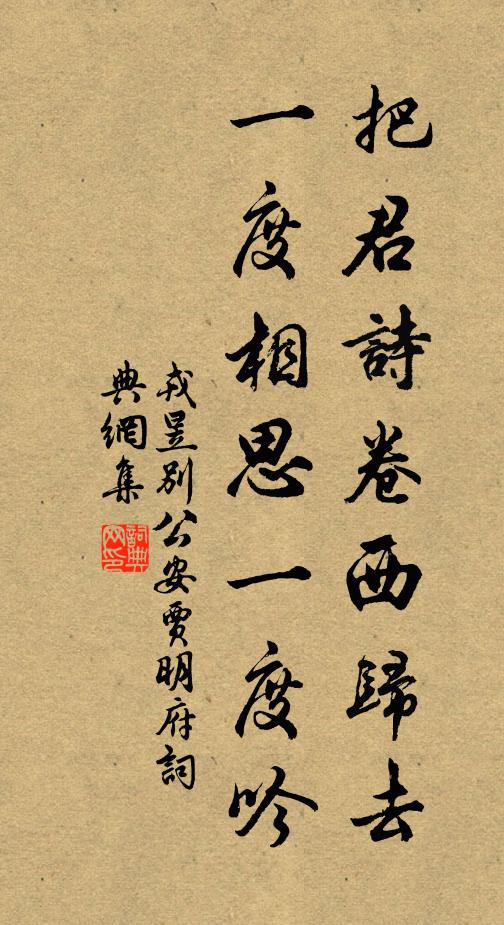 把君詩卷西歸去
一度相思一度吟
戎昱別公安賈明府詞
典網集
詞典
网印